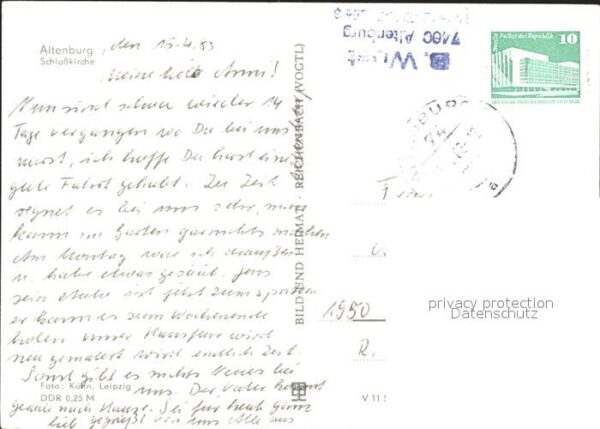 Altenburg
Schloßkirche
den 15.4.83
Meine liebe Anni!
Nun sind schon wieder 14
Tage vergangen wo Du bei uns
warst, ich hoffe Du hast eine
gute Fahrt gehabt. Zur Zeit
regnet es bei uns sehr, man
kann im Garten garnichts machen
Am Montag war ich draußen
u. habe etwas gesät. Jens
sein Auto ist jetzt zum
er kann es zum Wochenende
holen unser Hausflur wird
neu gemalert wird endlich Zeit.
Sonst gibt es nichts Neues bei
uns. Der Vater kommt
gerade nach Hause. Sei für heute ganz
lieb gegrüßt von uns Alle aus
Foto: Kühn, Leipzig
DDR 0,25 M
BILD UND HEIMAT · REICHENBACH (VOGTL)
V 11
7400 Altenburg
Palast der Republik
10
1950
R.
privacy protection
Datenschutz